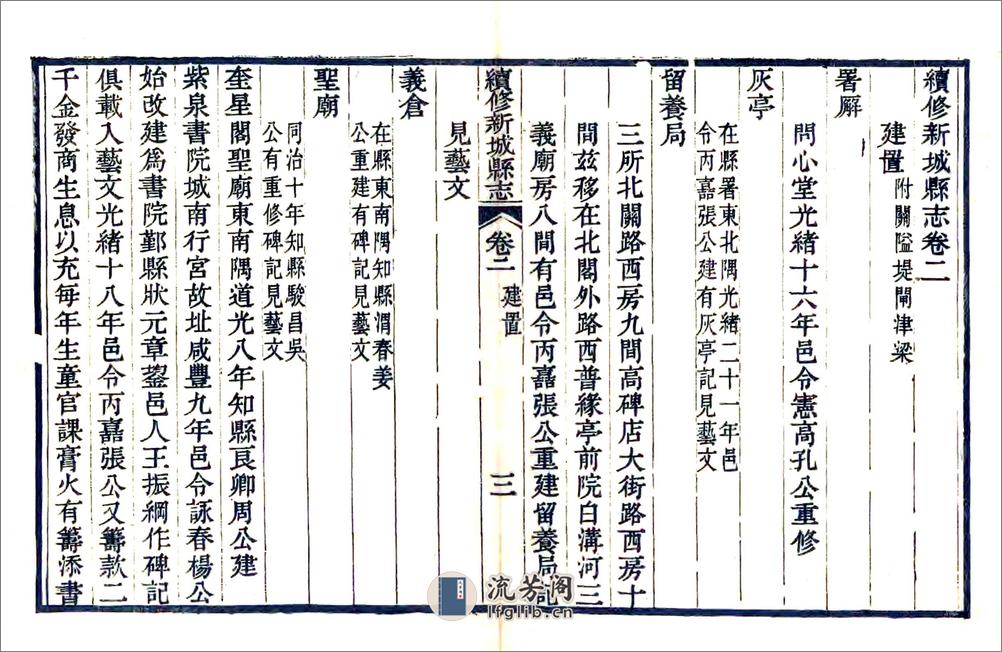 續修新城縣志卷二
建置附關隘堤閘津梁
署廨
問心堂光緒十六年邑令憲高孔公重修
灰亭
在縣署東北隅光緒二十一年邑
令丙嘉張公建有灰亭記見藝文
留養局
三所北關路西房九間高碑店大街路西房十
間兹移在北閣外路西普緣亭前院白溝河三
義廟房八間有邑令丙嘉張公重建留養局記
續修新城縣志
卷二
建置
三
見藝文
義倉
在縣東南隅知縣渭春姜
公重建有碑記見藝文
聖廟
同治十年知縣駿昌吳
公有重修碑記見藝文
奎星閣聖廟東南隅道光八年知縣良卿周公建
紫泉書院城南行宮故址咸豐九年邑令詠春楊公
始改建爲書院鄞縣狀元章鋆邑人王振綱作碑記
俱載入藝文光緒十八年邑令丙嘉張公又籌款二
千金發商生息以充每年生童官課膏火有籌添書
流芳阁
lfglib.cn